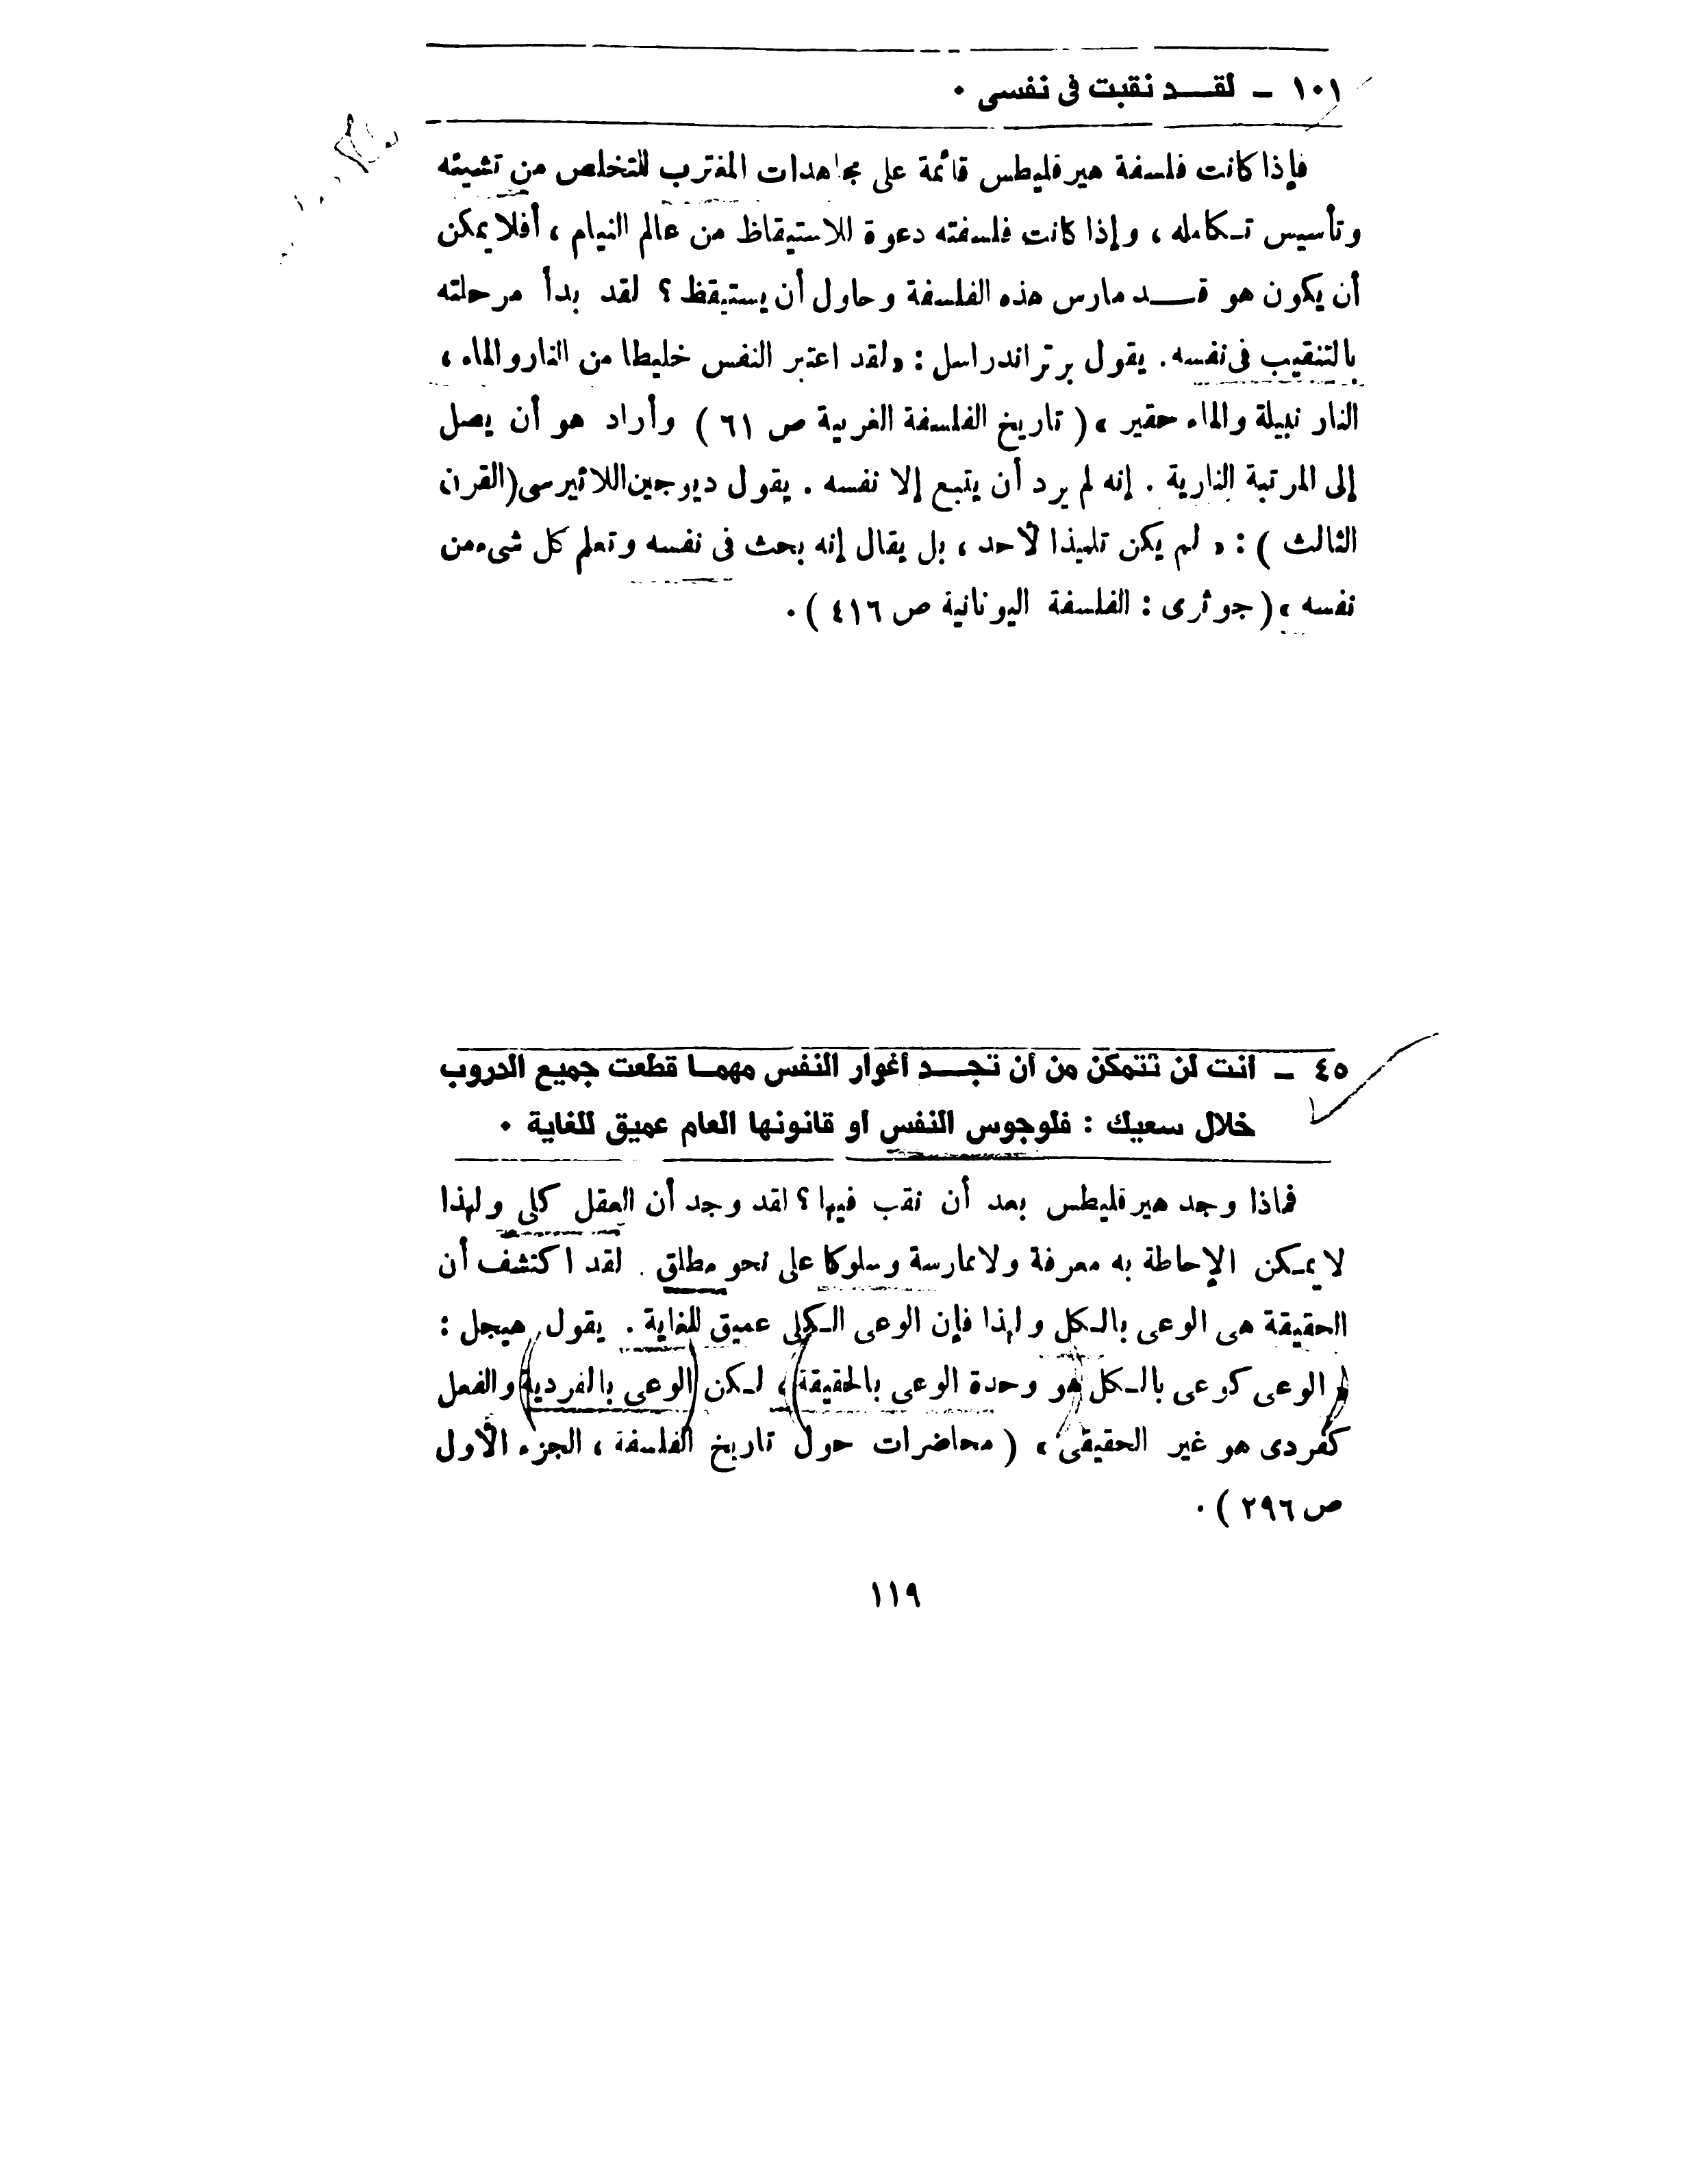 ١٠١ – لقد نقبت فى نفسى ٠
فإذا كانت فلسفة هيرقليطس قائمة على مجاهدات المغترب للتخلص من تشيئه
وتأسيس تكامله ، وإذا كانت فلسفته دعوة للاستيقاظ من عالم النيام ، أفلا يمكن
أن يكون هو قد مارس هذه الفلسفة وحاول أن يستيقظ ؟ لقد بدأ مرحلته
بالتنقيب فى نفسه . يقول برتراندراسل : « لقد اعتبر النفس خليطا من النار والماء ،
النار نبيلة والماء حقير » ( تاريخ الفلسفة الغربية ص ٦١ ) وأراد هو أن يصل
إلى المرتبة النارية . إنه لم يرد أن يتبع إلا نفسه . يقول ديوجين اللائيرسى ( القرن
الثالث ) : « لم يكن تلميذا لأحد ، بل يقال إنه بحث فى نفسه وتعلم كل شىء من
نفسه » ( جوثرى : الفلسفة اليونانية ص ٤١٦ ) .
٤٥ – أنت لن تتمكن من أن تجد أغوار النفس مهما قطعت جميع الدروب
خلال سعيك : فلوجوس النفس أو قانونها العام عميق للغاية ٠
فماذا وجد هيرقليطس بعد أن نقب فيها ؟ لقد وجد أن العقل كلى ولهذا
لا يمكن الإحاطة به معرفة ولا ممارسة وسلوكا على نحو مطلق . لقد اكتشف أن
الحقيقة هى الوعى بالكل ولهذا فإن الوعى الكلى عميق للغاية . يقول هيجل :
« الوعى كوعى بالكل هو وحدة الوعى بالحقيقة ، لكن الوعى بالفردية والفعل
كفردى هو غير الحقيقى » ( محاضرات حول تاريخ الفلسفة ، الجزء الأول
ص ٢٩٦ ) .
١١٩